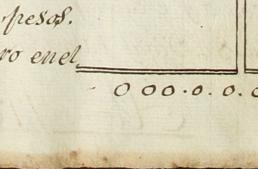 pesos.
ro enel
0 00.0.0.0